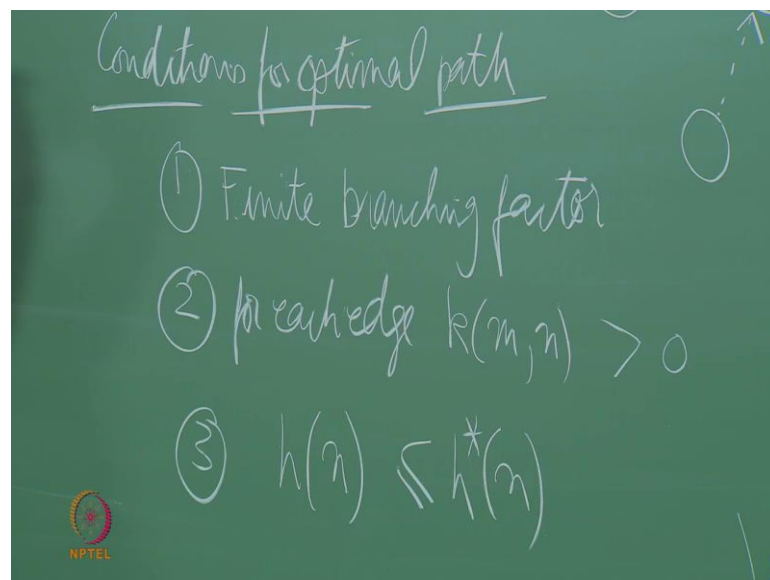 Conditions for optimal path
1 Finite branching factor
2 for each edge k(m,n) > 0
3 h(n) ≤ h*(n)
NPTEL